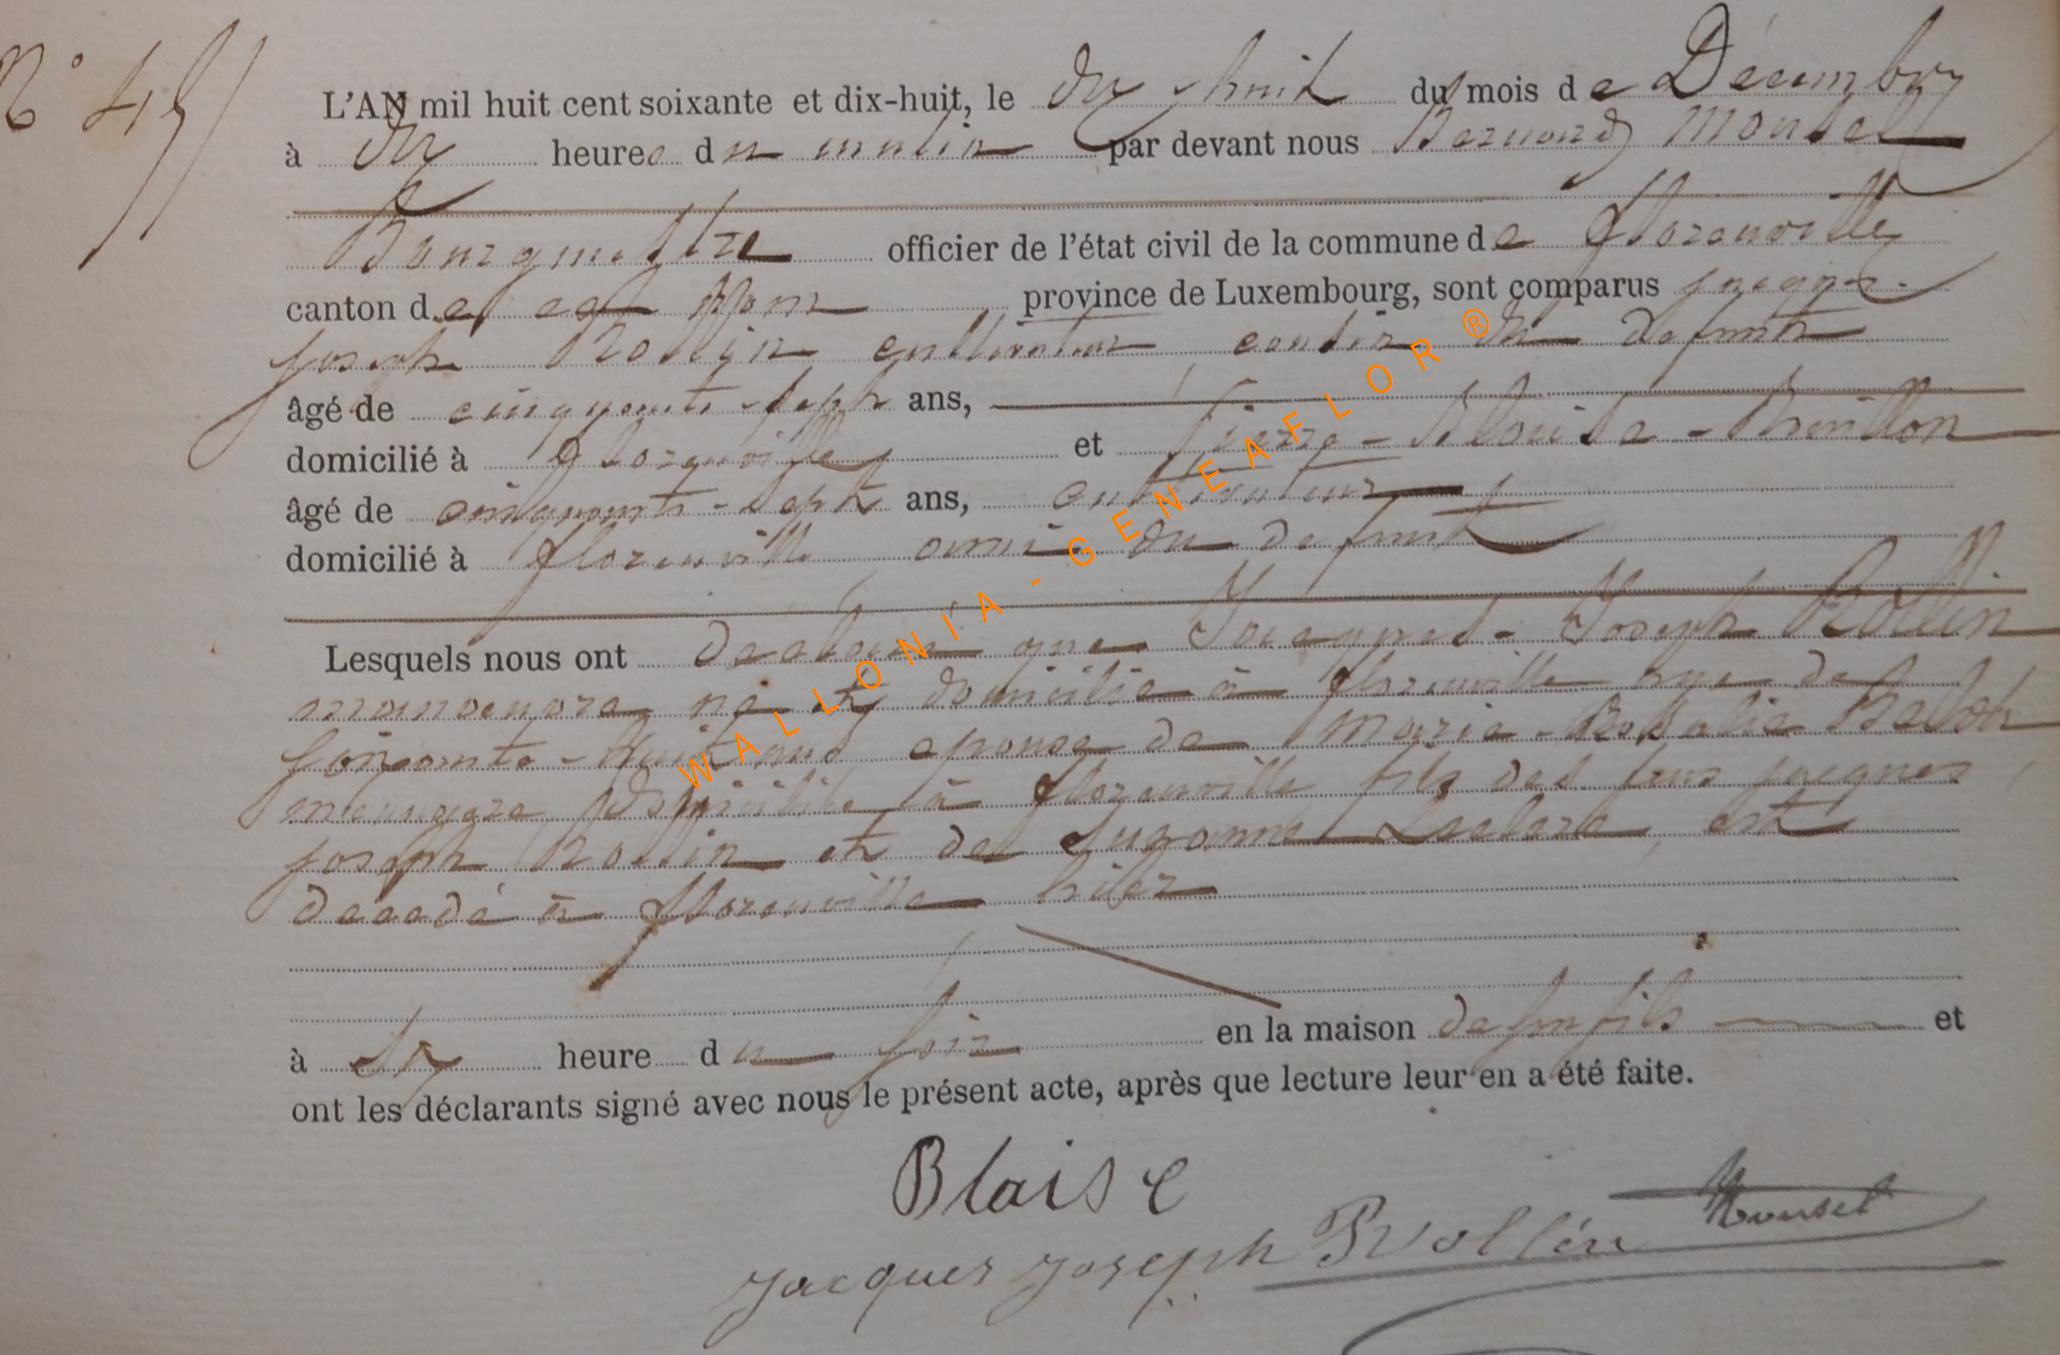 N° 45
L'AN mil huit cent soixante et dix-huit, le dix-huit du mois de Décembre
à dix heures du matin par devant nous Bernard Mousel
Bourgmestre officier de l'état civil de la commune de florenville
canton de province de Luxembourg, sont comparus Jacques
joseph Rollin cultivateur cousin du defunt
âgé de cinquante-sept ans,
domicilié à florenville et Pierre-Blaise-
âgé de cinquante-sept ans, cultivateur
domicilié à florenville ami du defunt
Lesquels nous ont déclaré que Jacques-Joseph Rollin
manoeuvre né et domicilié à florenville age de
soixante-huit ans epoux de Marie-Rosalie
menagere domicilié à florenville fils des feux jacques
joseph Rollin et de Suzanne Leclere, est
decedé à florenville hier
à six heure du soir en la maison de son fils et
ont les déclarants signé avec nous le présent acte, après que lecture leur en a été faite.
Blaise
Mousel
Jacques Joseph Rollin
WALLONIA-GENEAFLOR®